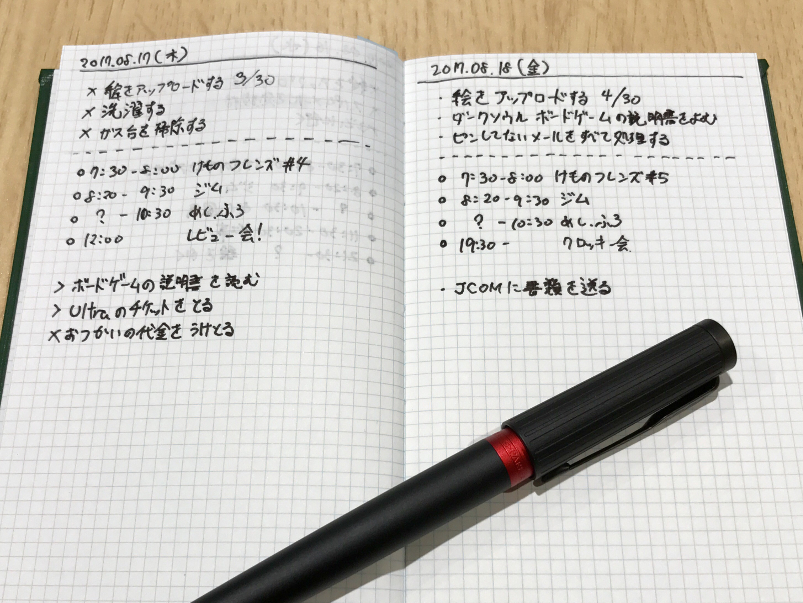 2017.08.17(木)
× 絵をアップロードする 3/30
× 洗濯する
× ガス台を掃除する
○ 7:30-8:00 けものフレンズ#4
○ 8:20- 9:30 ジム
○ ? - 10:30 めし、ふろ
○ 12:00 レビュー会!
> ボードゲームの説明書を読む
> Ultraのチケットをとる
× おつかいの代金をうけとる
2017.08.18(金)
・ 絵をアップロードする 4/30
・ ダークソウル ボードゲームの説明書をよむ
・ ピンしてないメールをすべて処理する
○ 7:30-8:00 けものフレンズ#5
○ 8:20-9:30 ジム
○ ? -10:30 めし、ふろ
○ 19:30- クロッキー会
・ JCOMに書類を送る